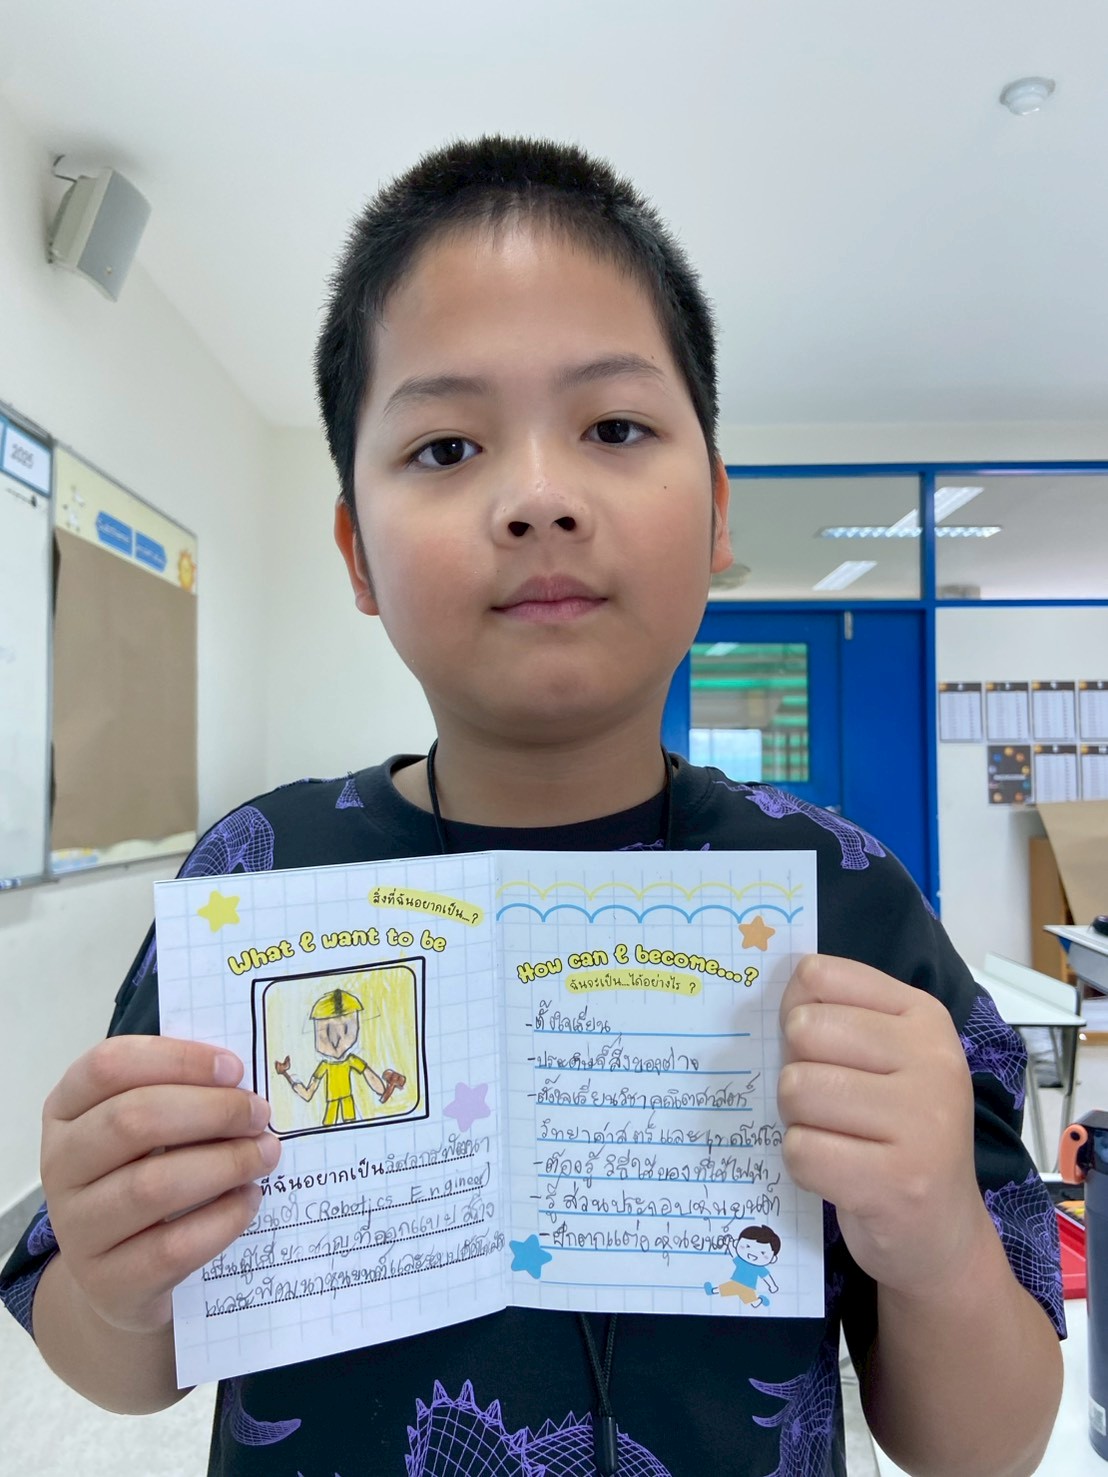 2025
สิ่งที่ฉันอยากเป็น...?
What I want to be
ที่ฉันอยากเป็นวิศวกรพัฒนา
ยนต์ (Robotics Engineer)
เป็นผู้เชี่ยวชาญที่ออกแบบ สร้าง
และพัฒนาหุ่นยนต์และระบบ
How can I become...?
ฉันจะเป็น...ได้อย่างไร ?
-ตั้งใจเรียน
-ประดิษฐ์สิ่งของต่าง
-ตั้งใจเรียนวิชาคณิตศาสตร์
วิทยาศาสตร์และเทคโนโล
-ต้องรู้ วิธีใช้ของที่ใช้ไฟฟ้า
-รู้ส่วนประกอบหุ่นยนต์
-ฝึกต่อหุ่นยนต์